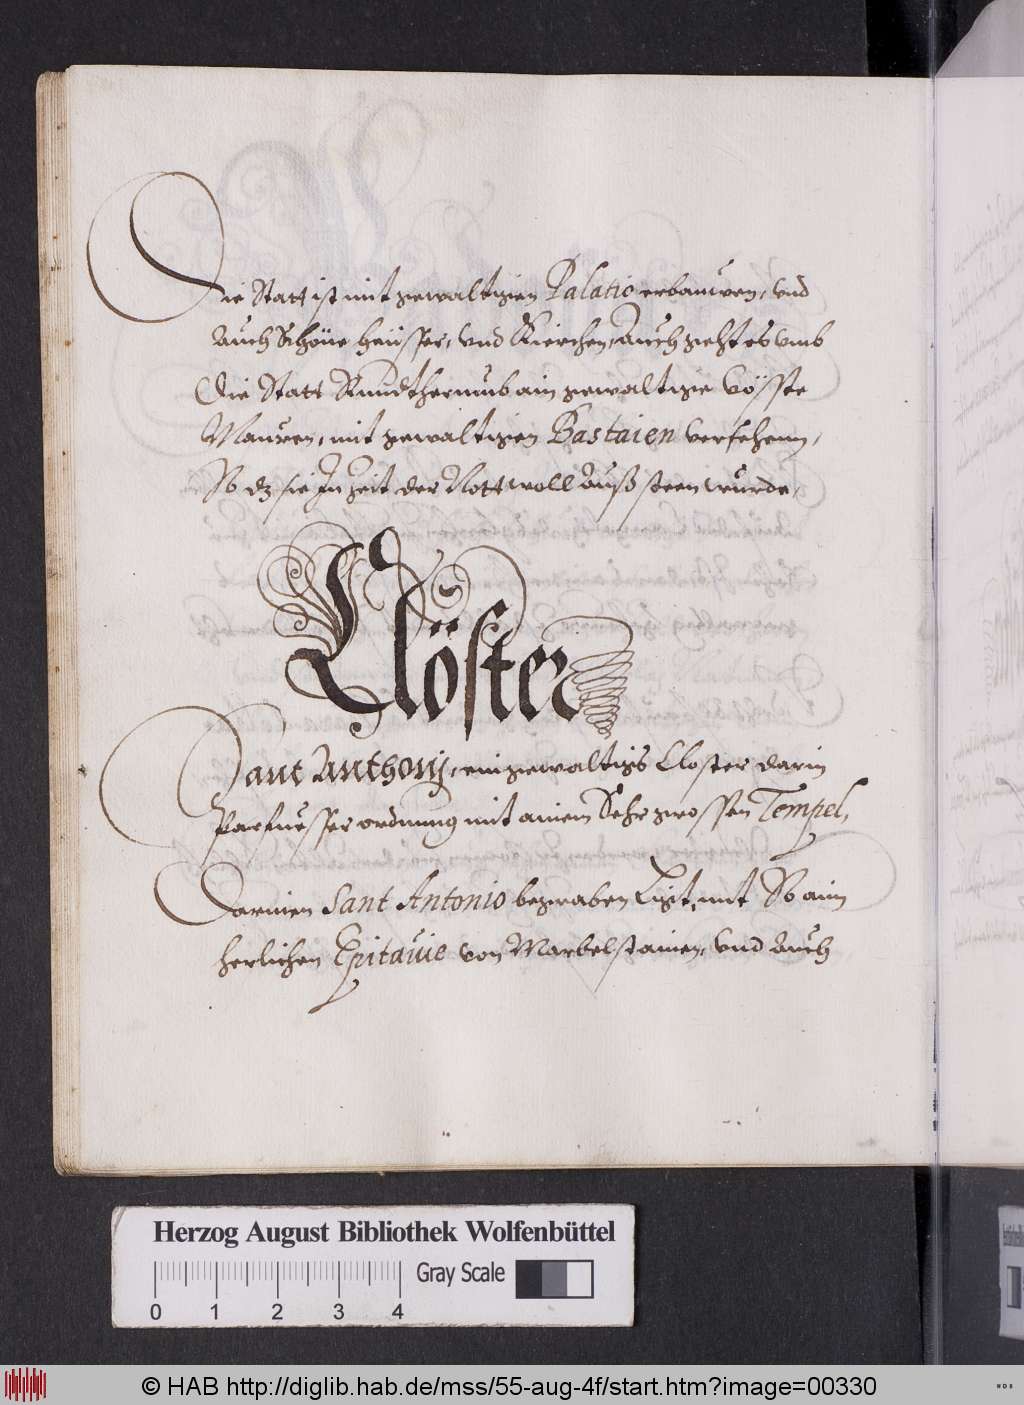 Die Statt ist mit gewaltigen Palatio erbauwen, vnd
Auch Schöne heüsser, vnd Kierchen, Auch zieht es vmb
Die Statt Rundtherumb ain gewaltige vösste
Mauren, mit gewaltigen Bastaien versehenn,
So dz sie In Zeit der Nott woll Auß steen wurde,
Clöster
Sant Anthonij, ein gewaltigs Closter darin
Parfuesser ordnung mit ainem Sehr grossen Tempel,
Darinen Sant Antonio begraben Ligt, mit So aim
herlichen Epitauie von Marbelstainen, vnd Auch
Herzog August Bibliothek Wolfenbüttel
Gray Scale
0 1 2 3 4
© HAB http://diglib.hab.de/mss/55-aug-4f/start.htm?image=00330